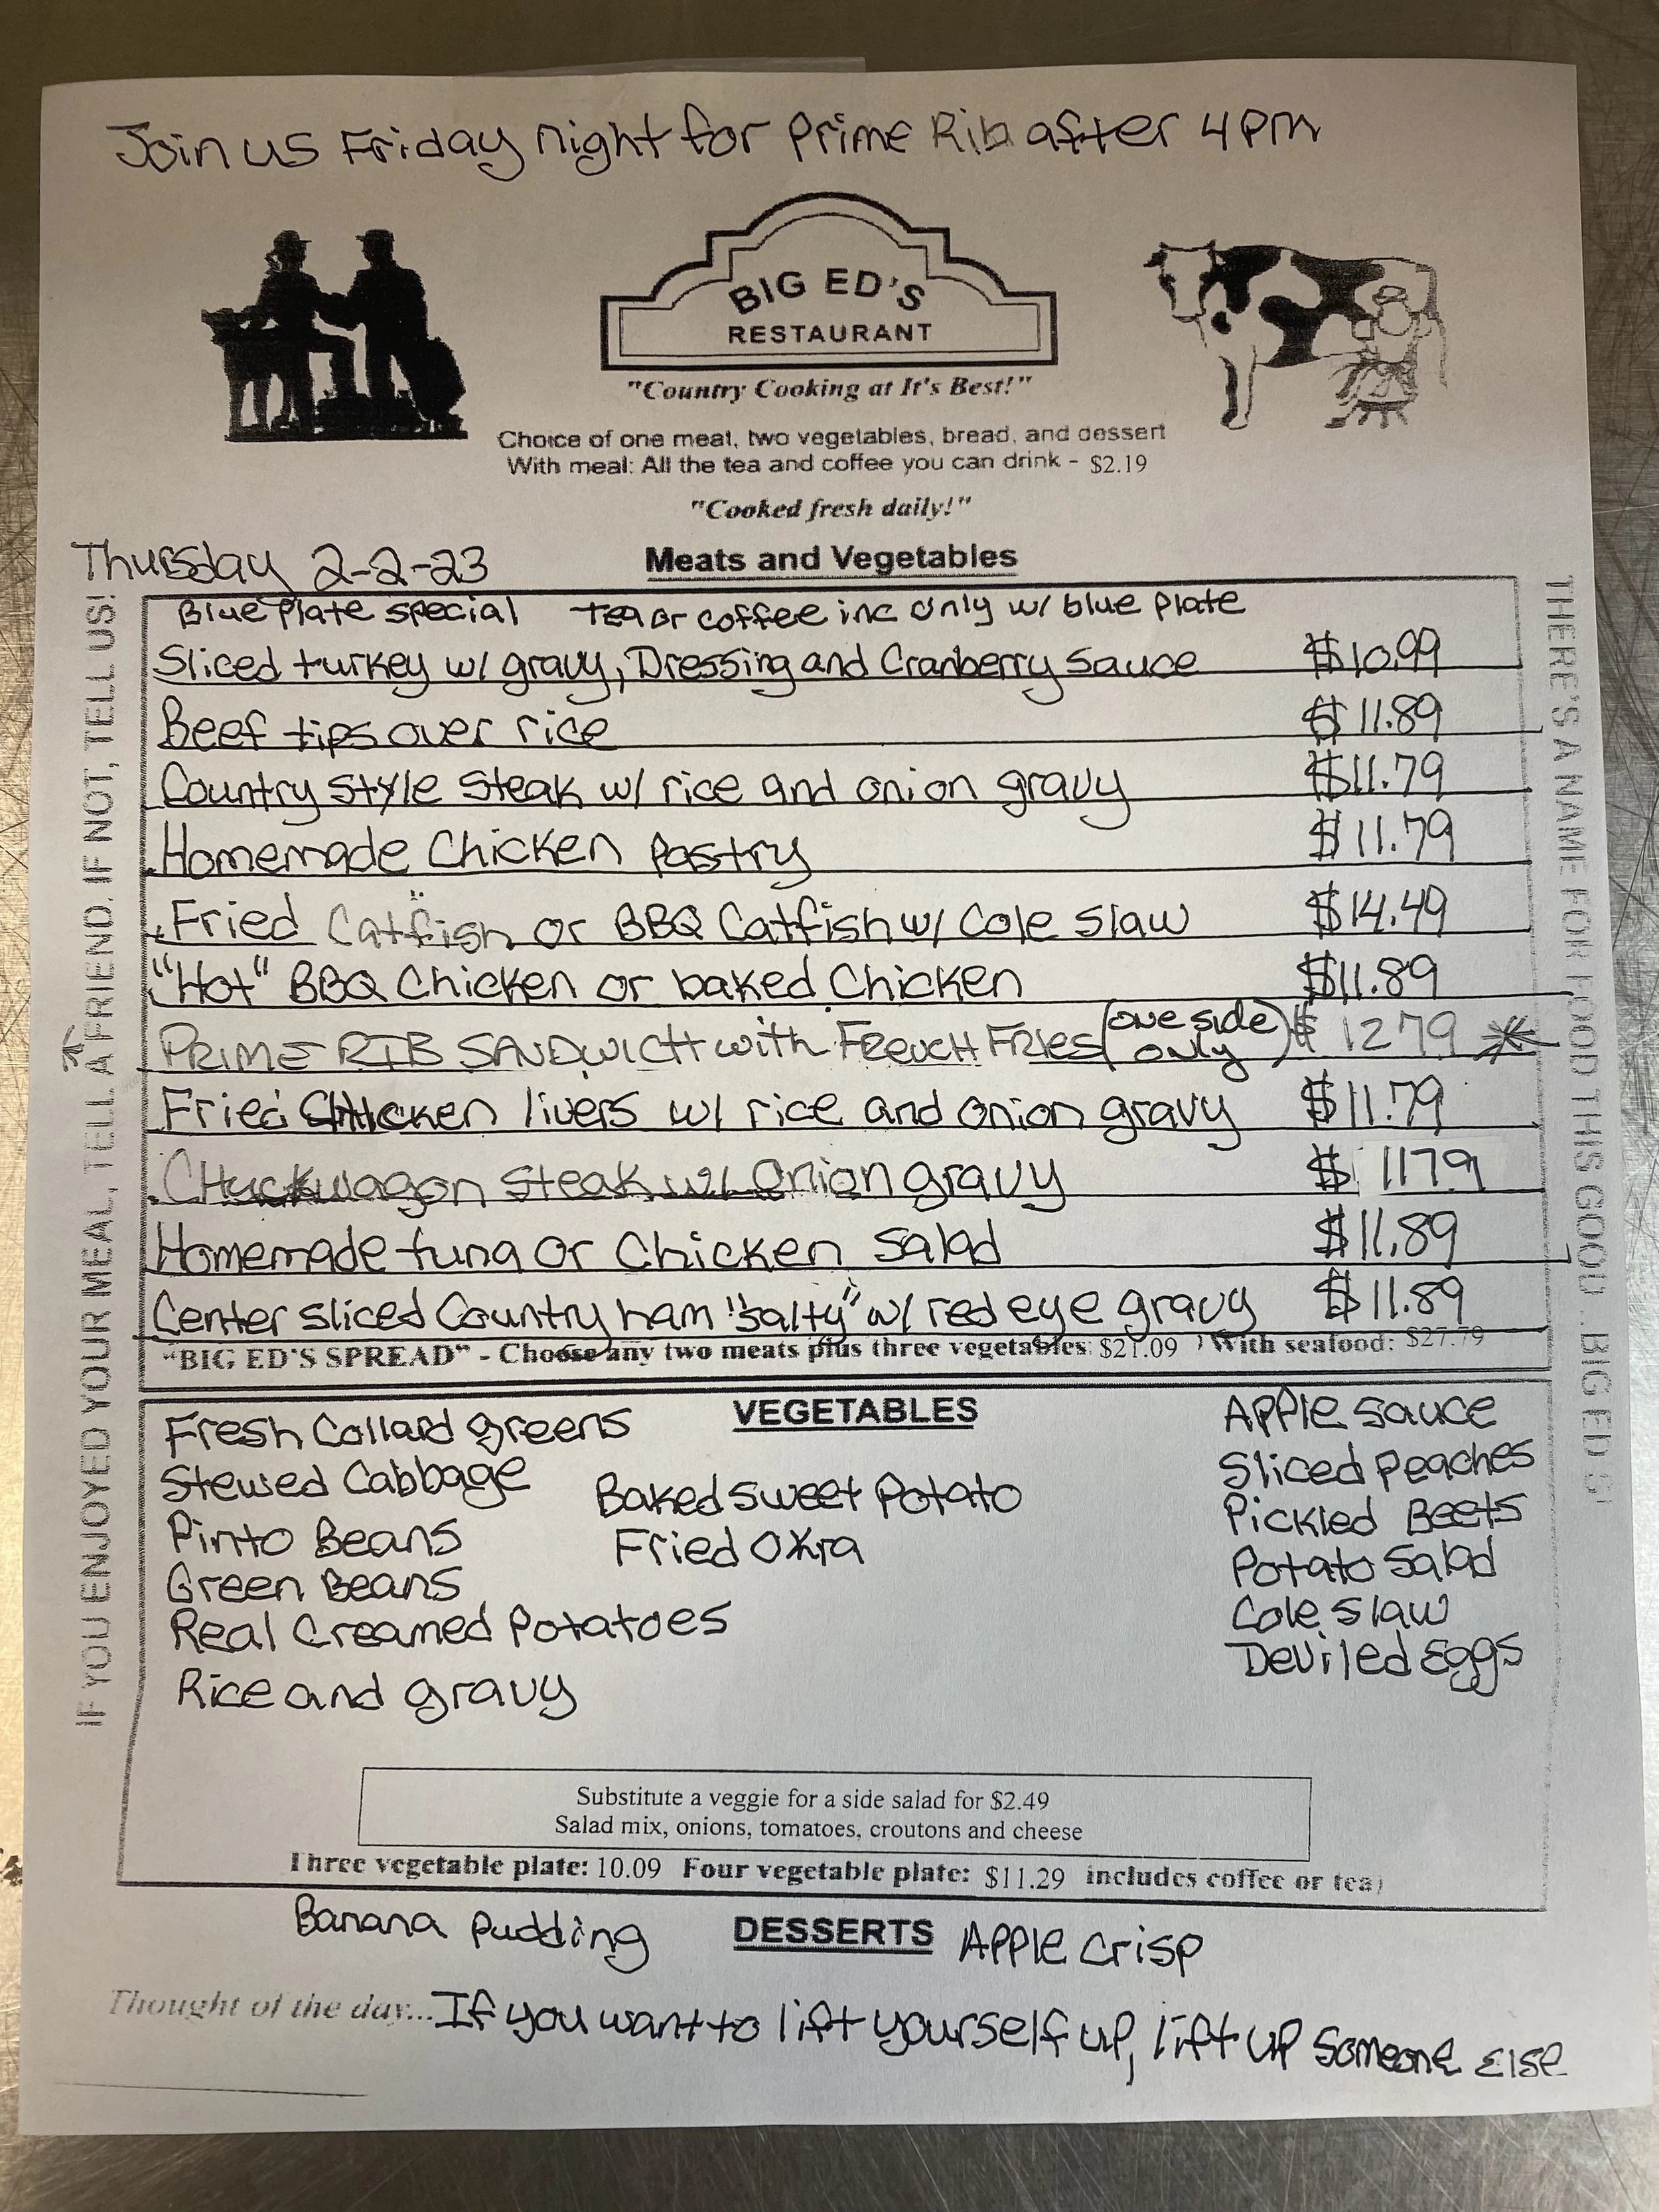 Join us Friday night for Prime Rib after 4 PM
BIG ED'S
RESTAURANT
"Country Cooking at It's Best!"
Choice of one meat, two vegetables, bread, and dessert
With meal: All the tea and coffee you can drink - $2.19
"Cooked fresh daily!"
Thursday 2-2-23
Meats and Vegetables
Blue Plate special Tea or coffee inc only w/ blue plate
Sliced turkey w/ gravy, Dressing and Cranberry Sauce $10.99
Beef tips over rice $11.89
Country Style Steak w/ rice and onion gravy $11.79
Homemade Chicken Pastry $11.79
Fried Catfish or BBQ Catfish w/ Cole Slaw $14.49
"Hot" BBQ Chicken or baked Chicken $11.89
PRIME RIB SANDWICH with FRENCH FRIES (one side only) $1279
Fried Chicken livers w/ rice and onion gravy $11.79
CHuckwagon Steak w/ Onion gravy $1179
Homemade tuna or Chicken Salad $11.89
Center sliced Country ham "salty" w/ red eye gravy $11.89
"BIG ED'S SPREAD" - Choose any two meats plus three vegetables: $21.09 ) With seafood: $27.79
VEGETABLES
Fresh Collard greens
Stewed Cabbage
Pinto Beans
Green Beans
Real Creamed Potatoes
Rice and gravy
Baked Sweet Potato
Fried Okra
Apple Sauce
Sliced Peaches
Pickled Beets
Potato Salad
Cole Slaw
Deviled Eggs
Substitute a veggie for a side salad for $2.49
Salad mix, onions, tomatoes, croutons and cheese
Three vegetable plate: 10.09 Four vegetable plate: $11.29 includes coffee or tea)
DESSERTS
Banana Pudding
Apple Crisp
Thought of the day... If you want to lift yourself up, lift up someone else
IF YOU ENJOYED YOUR MEAL, TELL A FRIEND. IF NOT, TELL US!
THERE'S A NAME FOR FOOD THIS GOOD...BIG ED'S!